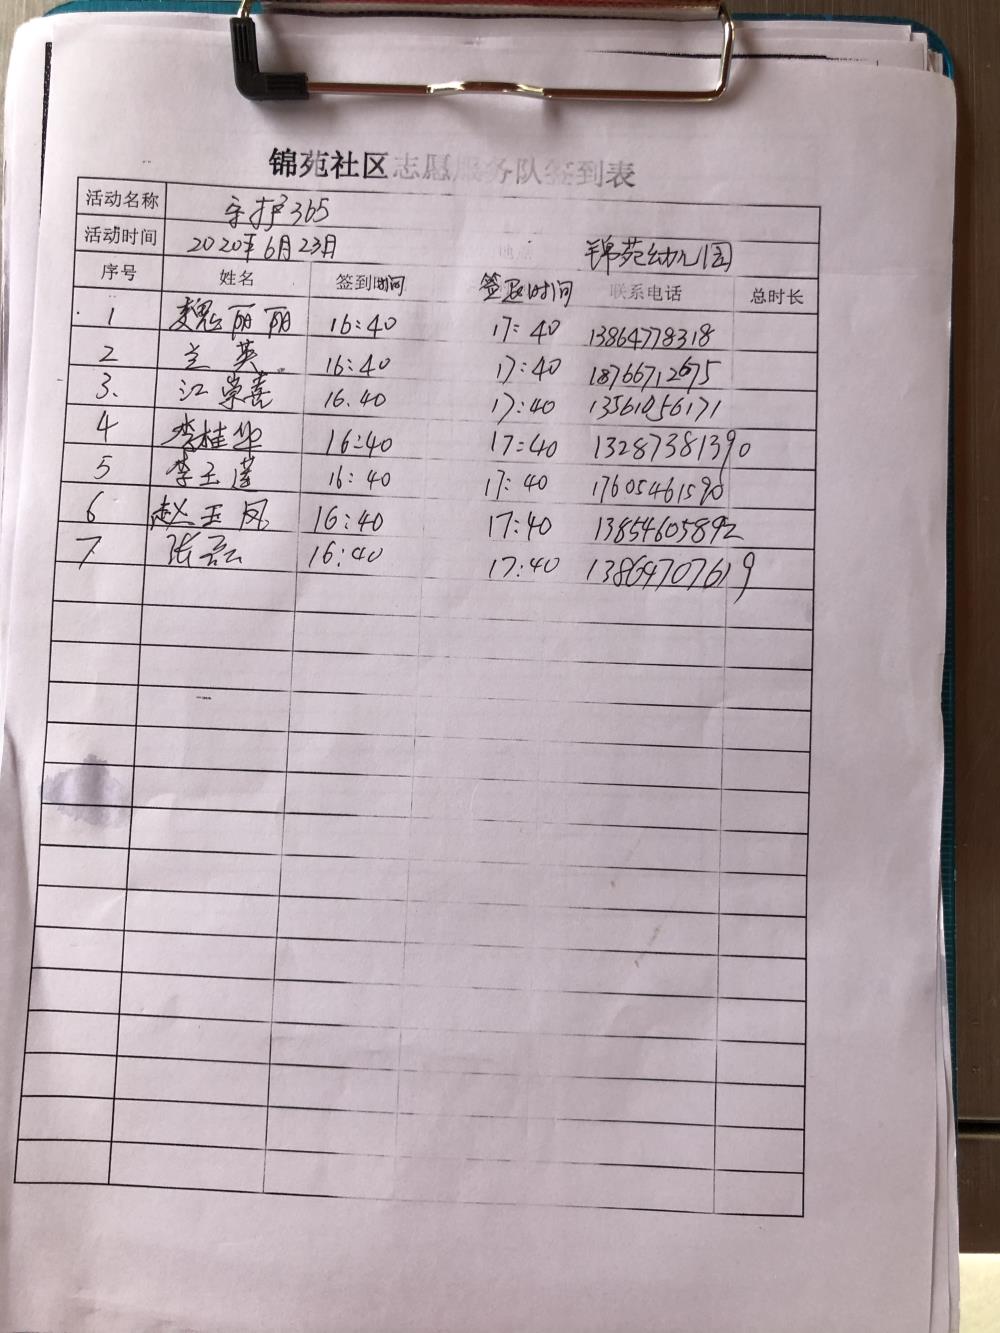 锦苑社区志愿服务队签到表
活动名称 守护365
活动时间 2020年6月23日 地点 锦苑幼儿园
序号 姓名 签到时间 签退时间 联系电话 总时长
1 魏丽丽 16:40 17:40 13864778318
2 兰英 16:40 17:40 18766712675
3. 江崇喜 16.40 17:40 13561056171
4 李桂华 16:40 17:40 13287381390
5 李玉莲 16:40 17:40 17605461590
6 赵玉凤 16:40 17:40 13854605892
7 张 16:40 17:40 13864707619